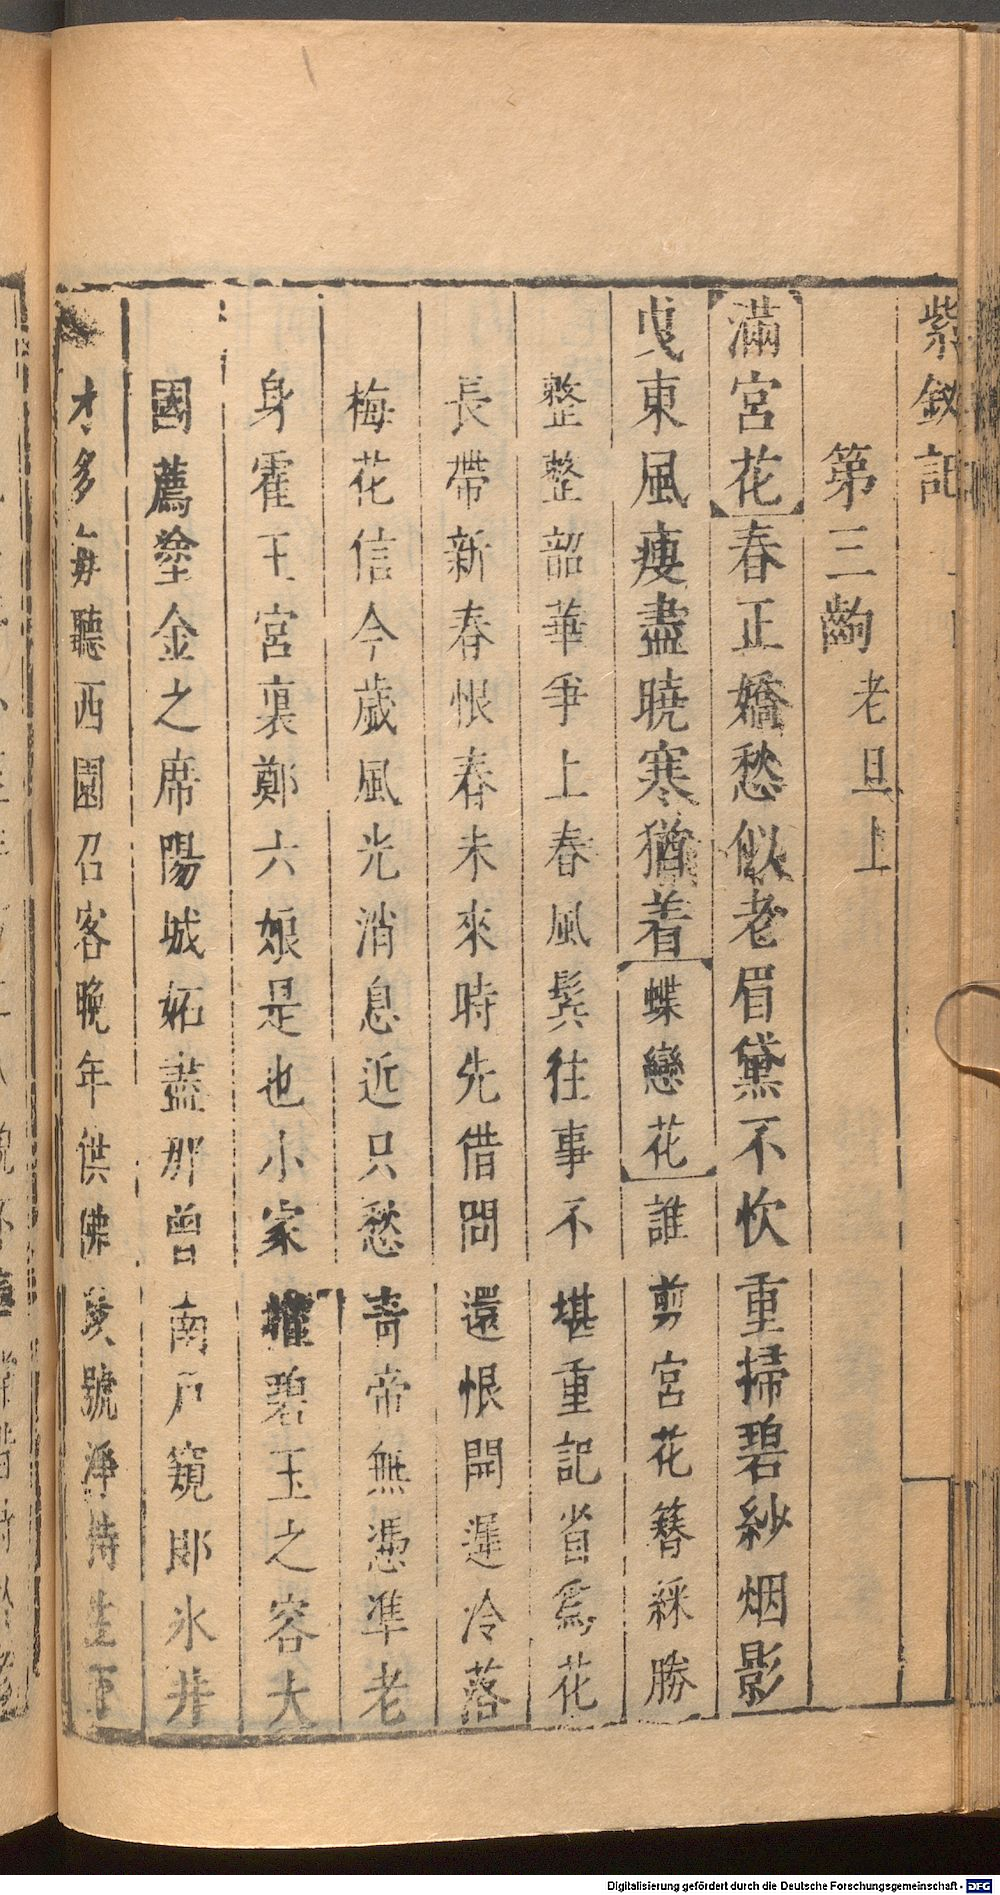 紫釵記
第三齣 老旦上
滿宮花 春正嬌愁似老眉黛不忺重掃碧紗烟影
曳東風瘦盡曉寒猶着 蝶戀花 誰剪宮花簪綵勝
整整韶華爭上春風鬂往事不堪重記省爲花
長帶新春恨春未來時先借問還恨開遲冷落
梅花信今歲風光消息近只愁靑帝無憑準老
身霍王宮裏鄭六娘是也小家 碧玉之容大
國薦塗金之席陽城妬盡那曾南戶窺郞氷井
才多每聽西園召客晚年供佛 號淨持生下
Digitalisierung gefördert durch die Deutsche Forschungsgemeinschaft - DFG